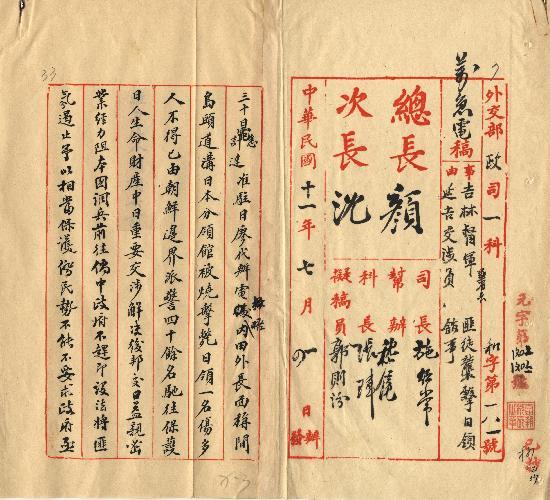 外交部 政司一科 和字第一八一號
萬急電稿
事由 吉林督軍
延吉交涉員
匪徒襲擊日領
館事
總長 顏
次長 沈
司長 施紹常
幫辦
科長 張瑋
擬稿員 鄭則汾
中華民國十一年七月 日 辦 發
33
三十日 計達准駐日廖代辦電 內田外長面稱間
島頭道溝日本分領館被燒擊斃日領一名傷多
人不得已由朝鮮邊界派警四十餘名馳往保護
日人生命財產中日重要交涉解決後邦交日益親密
業經力阻本國調兵前往倘中政府不趕即設法將匪
氛遏止予以相當保護 民勢不能不要求政府